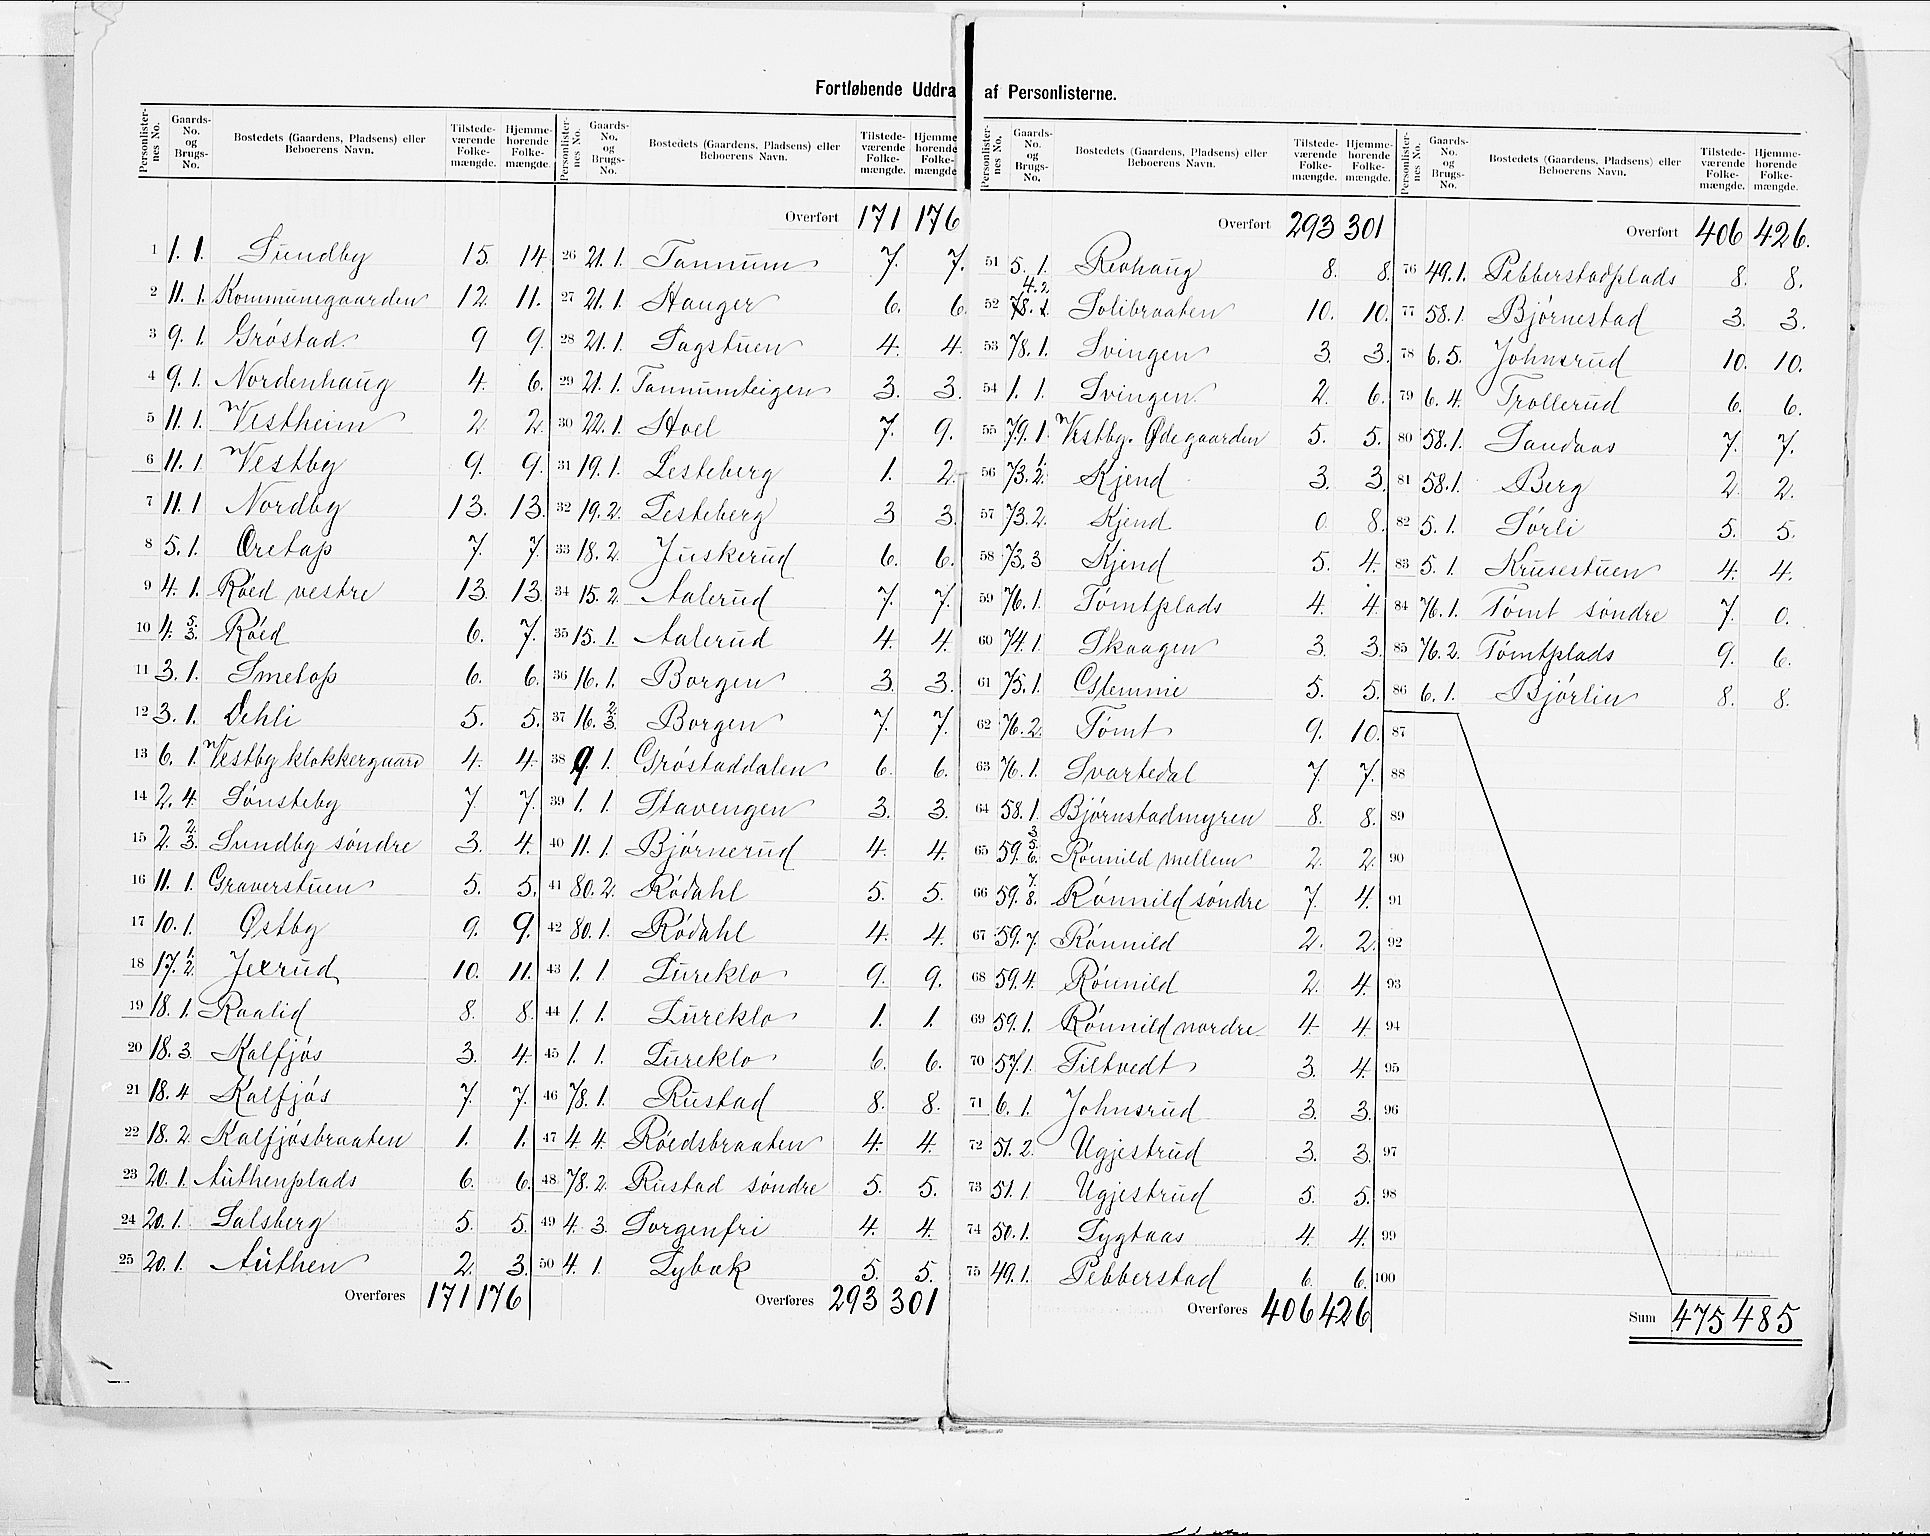 Fortløbende Uddra af Personlisterne.
Personlisternes No. Gaards-No. og Brugs-No. Bostedets (Gaardens, Pladsens) eller Beboerens Navn. Tilstedeværende Folkemængde. Hjemmehørende Folkemængde.
1 1. 1. Sundby 15. 14
2 11. 1. Kommunegaarden 12. 11.
3 9. 1. Gróstad. 9 9.
4 9. 1. Nordenhaug 4. 6.
5 11. 1. Vestheim 2 2.
6 11. 1 Vestby 9. 9.
7 11. 1 Nordby 13. 13.
8 5. 1. Oretop 7. 7.
9 4. 1. Róed vestre 13. 13.
10 4. 5. 3. Róed 6. 7.
11 3. 1. Smetop 6. 6.
12 3. 1. Dehli 5. 5.
13 6. 1. Vestby klokkergaard 4. 4.
14 2. 4. Sónsteby 7. 7.
15 2. 2. 3. Sundby söndre 3. 4.
16 11. 1. Graverstuen 5. 5.
17 10. 1. Østby 9. 9.
18 17. 1. 2. Jexrud 10. 11.
19 18. 1. Raalid 8. 8.
20 18. 3 Kalfjós 3. 4.
21 18. 4 Kalfjós 7. 7.
22 18. 2. Kalfjósbraaten 1. 1.
23 20. 1. Authenplads 6. 6.
24 20. 1. Salsberg 5. 5.
25 20. 1. Authen 2. 3.
Overføres 171 176
Overført 171 176
26 21. 1. Tannum 7. 7.
27 21. 1. Hauger 6. 6.
28 21. 1. Sagstuen 4. 4.
29 21. 1. Tannumteigen 3. 3.
30 22. 1. Hoel 7. 9.
31 19. 1. Lesteberg 1. 2.
32 19. 2. Lesteberg 3 3.
33 18. 2. Juskerud 6. 6.
34 15. 2. Aalerud 7. 7.
35 15. 1. Aalerud 4. 4.
36 16. 1. Borgen 3. 3.
37 16. 2. 3. Borgen 7. 7.
38 9. 1. Gróstaddalen 6. 6.
39 1. 1. Stavengen 3. 3.
40 11. 1. Bjórnerud 4. 4.
41 80. 2. Ródahl 5. 5.
42 80. 1. Ródahl 4. 4.
43 1. 1. Lureklo 9. 9.
44 1. 1. Lureklo 1. 1.
45 1. 1. Lureklo 6. 6.
46 78. 1. Rustad 8. 8.
47 4. 4. Róedsbraaten 4. 4.
48 78. 2. Rustad söndre 5. 5.
49 4. 3. Sorgenfri 4. 4.
50 4. 1. Lybæk 5. 5.
Overføres 293 301
Overført 293 301
51 5. 1. Revhaug 8. 8.
52 4. 2. Solibraaten 10. 10.
53 78. 1. Svingen 3. 3.
54 1. 1. Svingen 2. 6.
55 79. 1. Vestby. Ødegaarden 5. 5.
56 73. 1. 2. Kjend 3. 3.
57 73. 2. Kjend 0. 8.
58 73. 3 Kjend 5. 4.
59 76. 1. Tómtplads 4. 4.
60 74. 1. Skaugen 3. 3.
61 75. 1. 5. 5.
62 76. 2. Tómt 9. 10.
63 76. 1. Svartedal 7. 7.
64 58. 1. Bjórnstadmyren 8. 8.
65 59. 3 5. 6. Rónnild mellem 2. 2.
66 59. 7. 8. Rónnild söndre 7. 4.
67 59. 7. Rónnild 2. 2.
68 59. 4. Rónnild 2. 4.
69 59. 1. Rónnild nordre 4. 4.
70 57. 1. Tiltvedt 3. 4.
71 6. 1. Johnsrud 3. 3.
72 51. 2. Ugjestrud 3. 3.
73 51. 1. Ugjestrud 5. 5.
74 50. 1. Lygtaas 4. 4.
75 49. 1. Pebberstad 6. 6.
Overføres 406 426
Overført 406 426.
76 49. 1. Pebberstadplads 8. 8.
77 58. 1. Bjórnestad 3. 3.
78 6. 5. Johnsrud 10. 10.
79 6. 4. Trollerud 6. 6.
80 58. 1. Sandaas 7. 7.
81 58. 1. Berg 2. 2.
82 5. 1. Sórli 5. 5.
83 5. 1. Krusestuen 4. 4.
84 76. 1. Tómt söndre 7. 0.
85 76. 2. Tómtplads 9. 6.
86 6. 1. Bjórlin 8. 8.
87
88
89
90
91
92
93
94
95
96
97
98
99
100
Sum 475 485